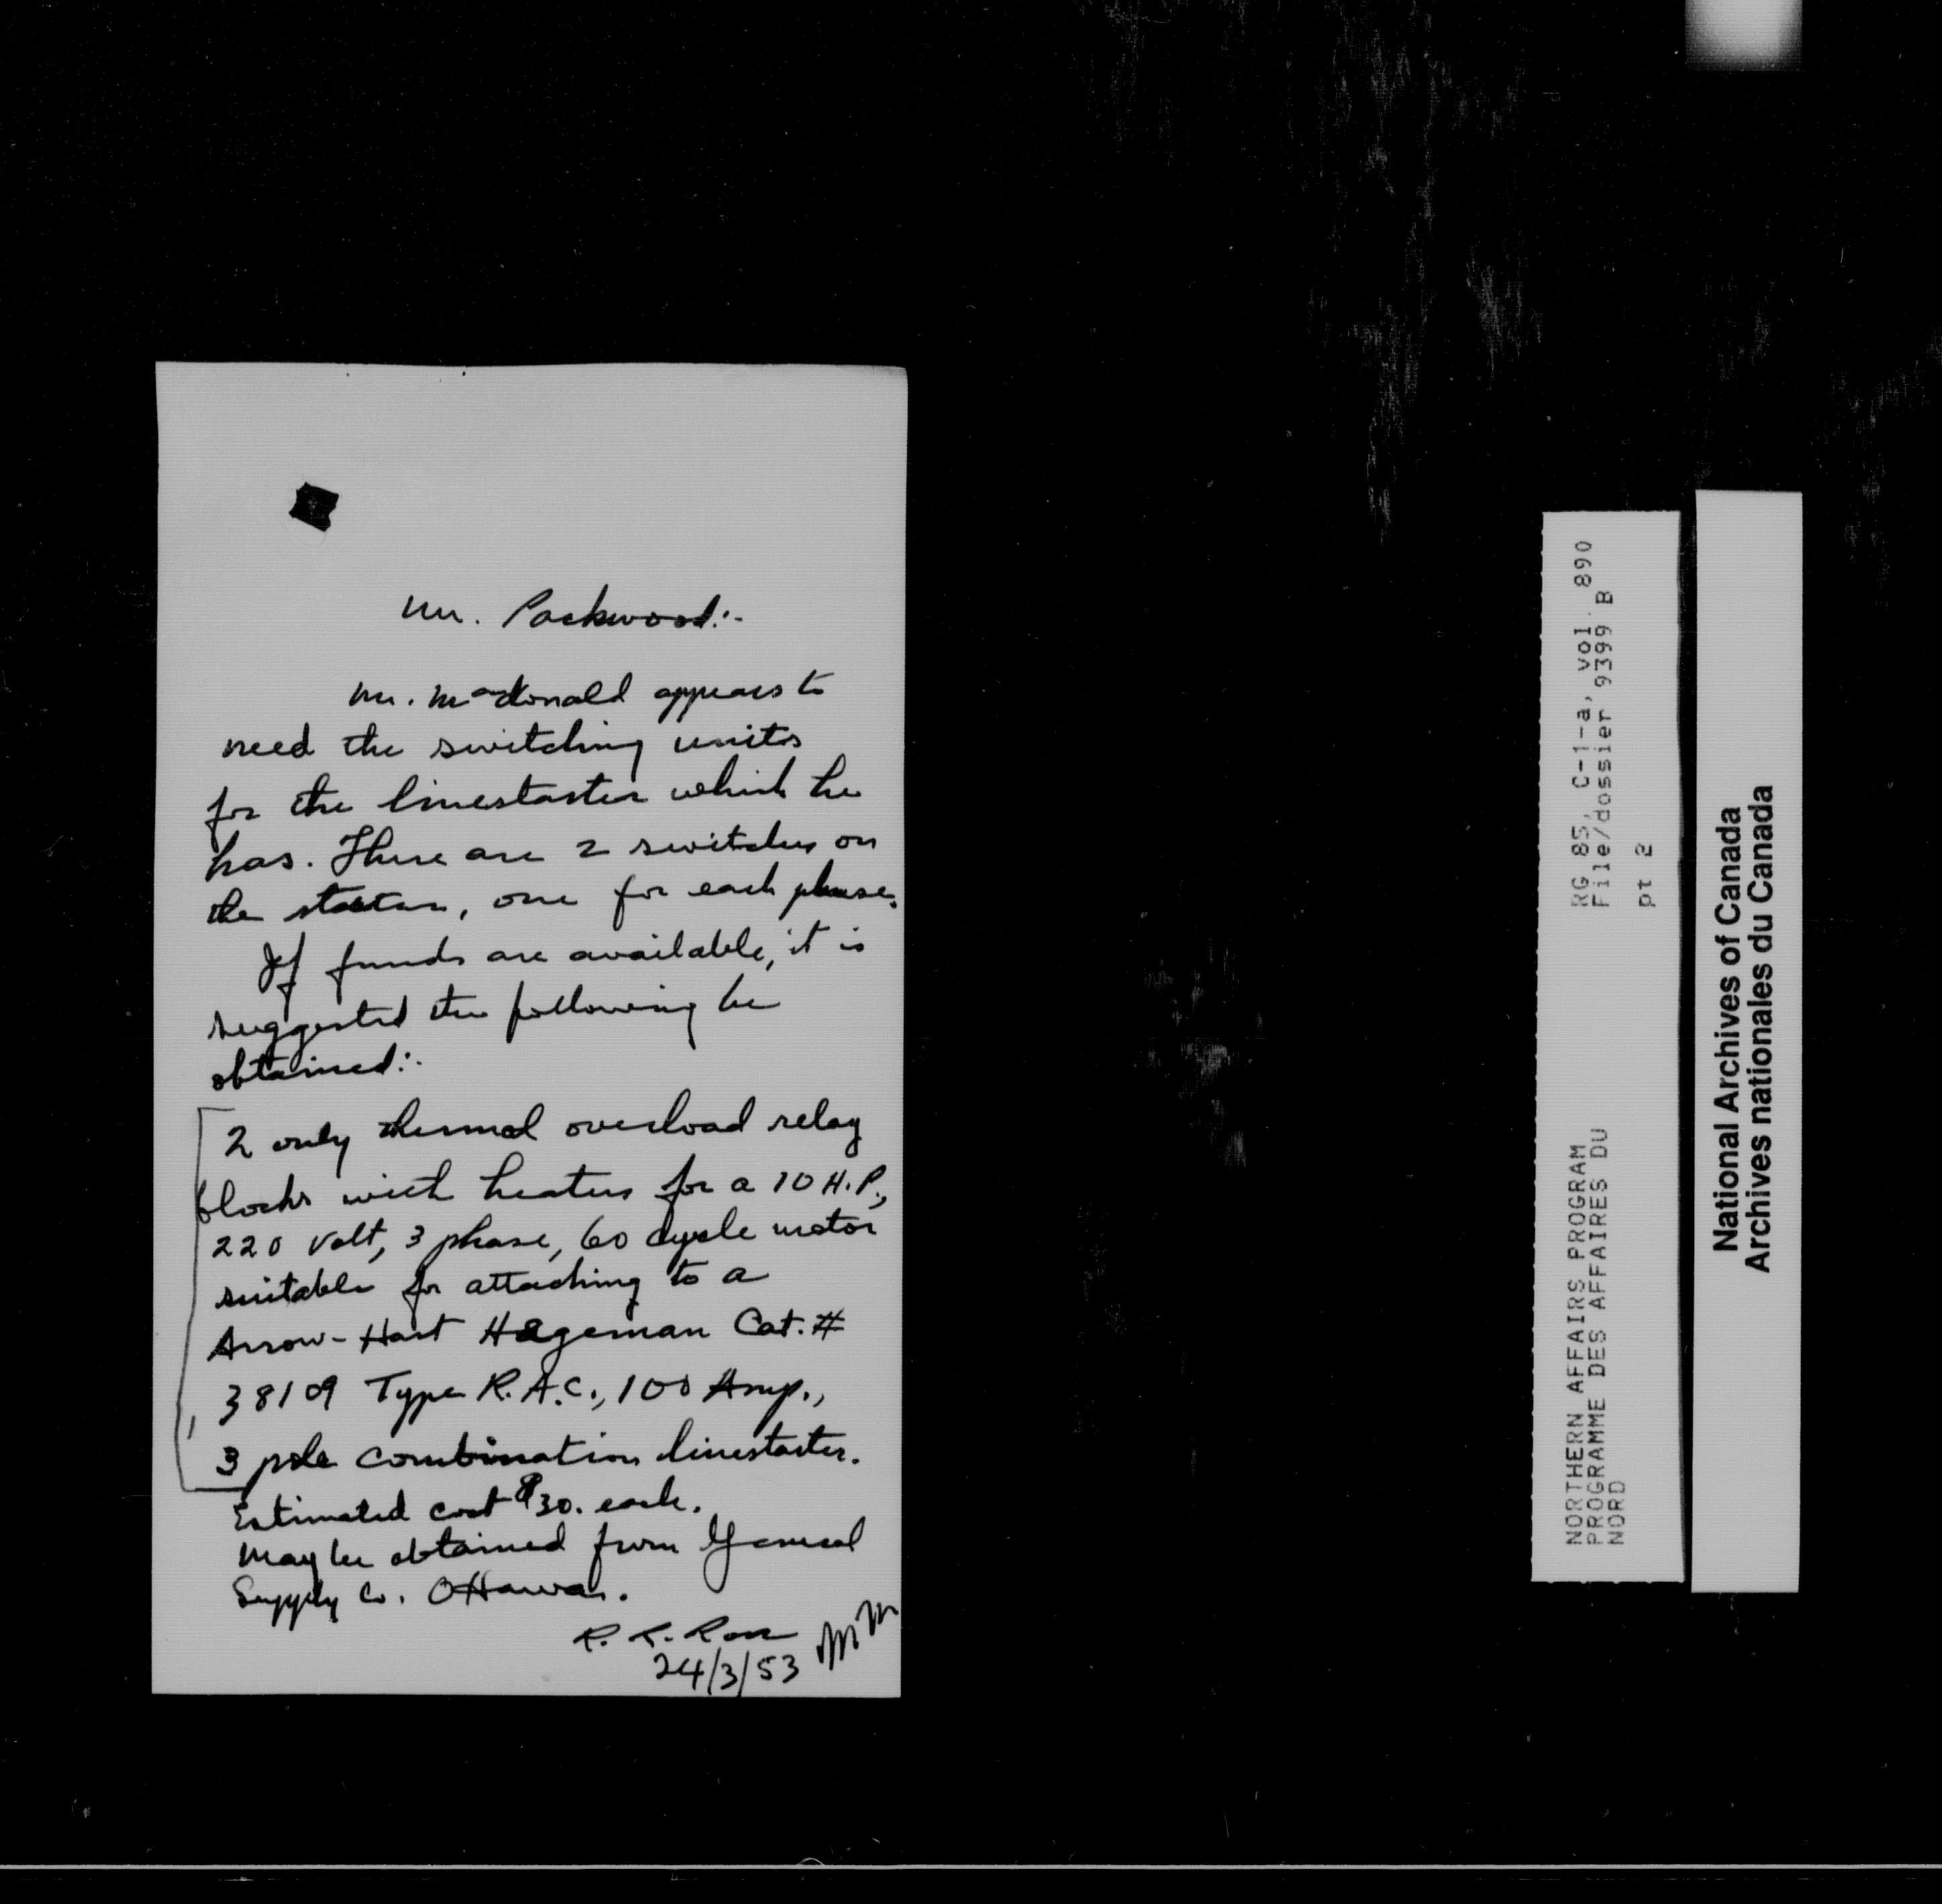 Mr. Packwood:-
Mr. Macdonald appears to
need the switching units
for the linestarter which he
has. There are 2 switches on
the starter, one for each phase.
If funds are available, it is
suggested the following be
obtained:-
2 only thermal overload relay
blocks with heaters for a 10 H.P.,
220 Volt, 3 phase, 60 cycle motor
suitable for attaching to a
Arrow-Hart Hageman Cat. #
38109 Type R.A.C., 100 Amp.,
3 pole combination linestarter.
Estimated cost $30. each.
May be obtained from General
Supply Co. Ottawa.
R. R. Ross
24/3/53
RG 85, C-1-a, vol. 890
File/dossier 9399 B
pt 2
NORTHERN AFFAIRS PROGRAM
PROGRAMME DES AFFAIRES DU
NORD
National Archives of Canada
Archives nationales du Canada